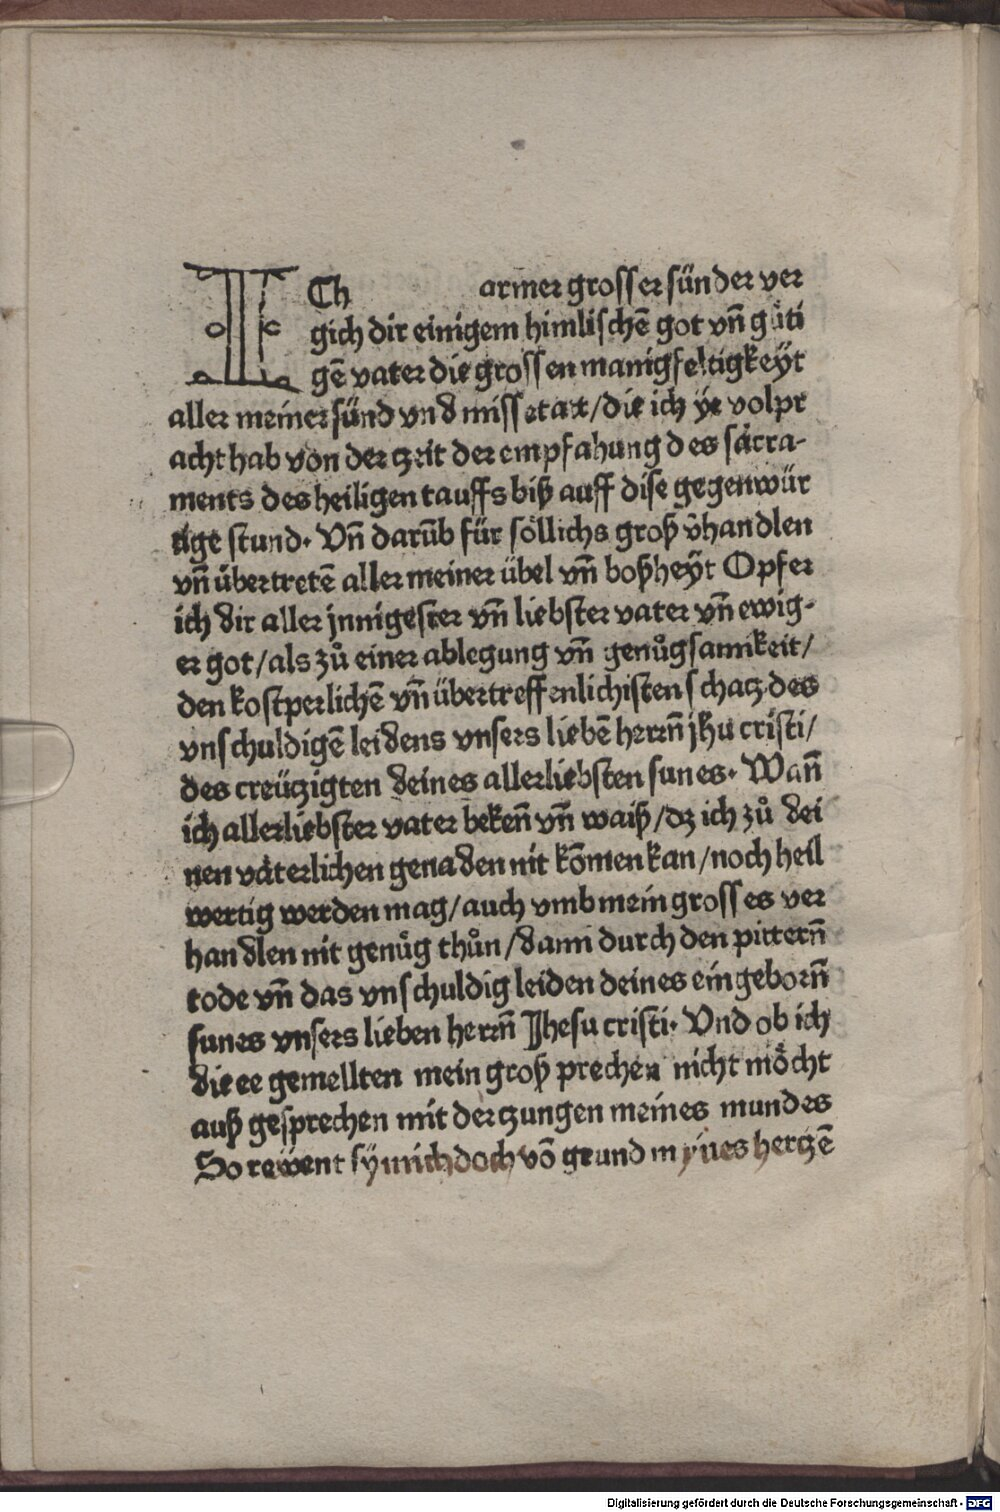 ICh armer grosser sünder ver
gich dir einigem himlischē got vn̄ gůti
gē vater die grossen manigfeltigkeÿt
aller meiner sünd vnd missetat/die ich ÿe volpr
acht hab von der tzeit der empfahung des sacra-
ments des heiligen tauffs biß auff dise gegenwür
tige stund. Vn̄ darūb für söllichs groß v̄handlen
vn̄ übertretē aller meiner übel vn̄ boßheÿt Opfer
ich dir aller jnnigester vn̄ liebster vater vn̄ ewig-
er got/als zů einer ablegung vn̄ genůgsamkeit/
den kostperlichē vn̄ übertreffenlichisten schatz des
vnschuldigē leidens vnsers liebē herrn̄ jħu cristi/
des creützigten deines allerliebsten sunes. Wan̄
ich allerliebster vater beken̄ vn̄ waiß/dz ich zů dei
nen väterlichen genaden nit kōmen kan/noch heil
wertig werden mag/auch vmb mein grosses ver
handlen nit genůg thůn/dann durch den pittern̄
tode vn̄ das vnschuldig leiden deines eingeborn̄
sunes vnsers lieben herrn̄ Jhesu cristi. Vnd ob ich
die ee gemellten mein groß prechen nicht möcht
auß gesprechen mit der tzungen meines mundes
So rewent sÿ mich doch vō grund mynes hertzē
Digitalisierung gefördert durch die Deutsche Forschungsgemeinschaft - DFG